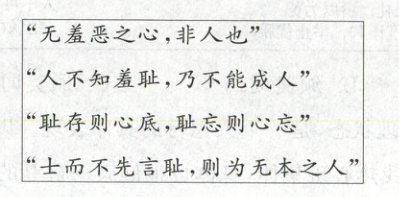 “无羞恶之心，非人也”
“人不知羞耻，乃不能成人”
“耻存则心底，耻忘则心忘”
“士而不先言耻，则为无本之人”